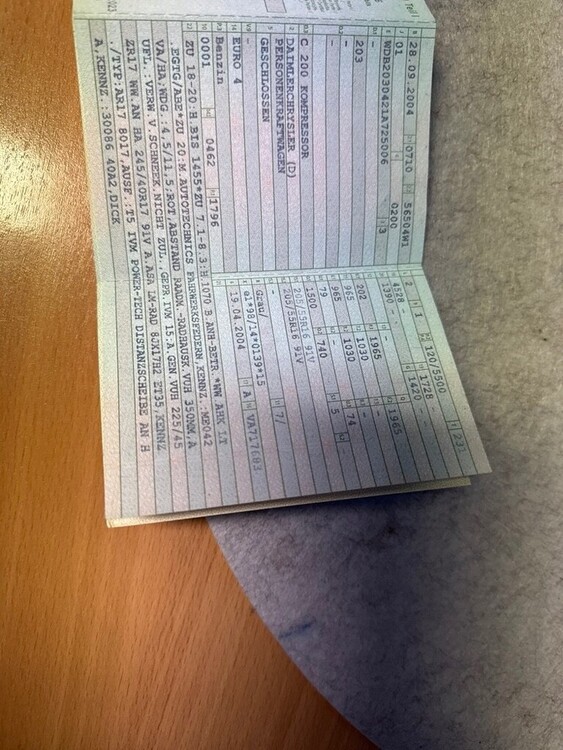 Teil I
28.09.2004 0710 56504W1
01 0200
WDB2030421A725006 3
203
-
-
C 200 KOMPRESSOR
DAIMLERCHRYSLER (D)
PERSONENKRAFTWAGEN
GESCHLOSSEN
-
EURO 4
Benzin
0001 0462 1796
2 1 120/5500 231
4528 - 1728 -
1390 - 1420
202 1965 - 1965
965 1030 -
965 1030 74
79 740 5
1500 -
205/55R16 91V
205/55R16 91V
-
Grau/ 7/
e1*98/14*0139*15
19.04.2004 A
ZU 18-20:H.BIS 1455*ZU 7.1-8.3:H.1070 B.ANH-BETR.*WW.AHK LT
.EGTG/ABE*ZU 20:M.AUTOTECHNICS FAHRWERKSFEDERN,KENNZ.:ME042
VA/HA,WDG.:4,5/11,5;ROT,ABSTAND RADM.-RADHAUSK.VUH 350MM,A
UFL.:VERW.V.SCHNEEK.NICHT ZUL.,GEPR.IVM 15.A.GEN.VUH 225/45
ZR17 WW.AN HA 245/40R17 91V A.ASA LM-RAD 8JX17H2 ET35,KENNZ
./TYP:AR17 8017,AUSF.:T5 IVM POWER-TECH DISTANZSCHEIBE AN H
A,KENNZ.:30086 40A2,DICK